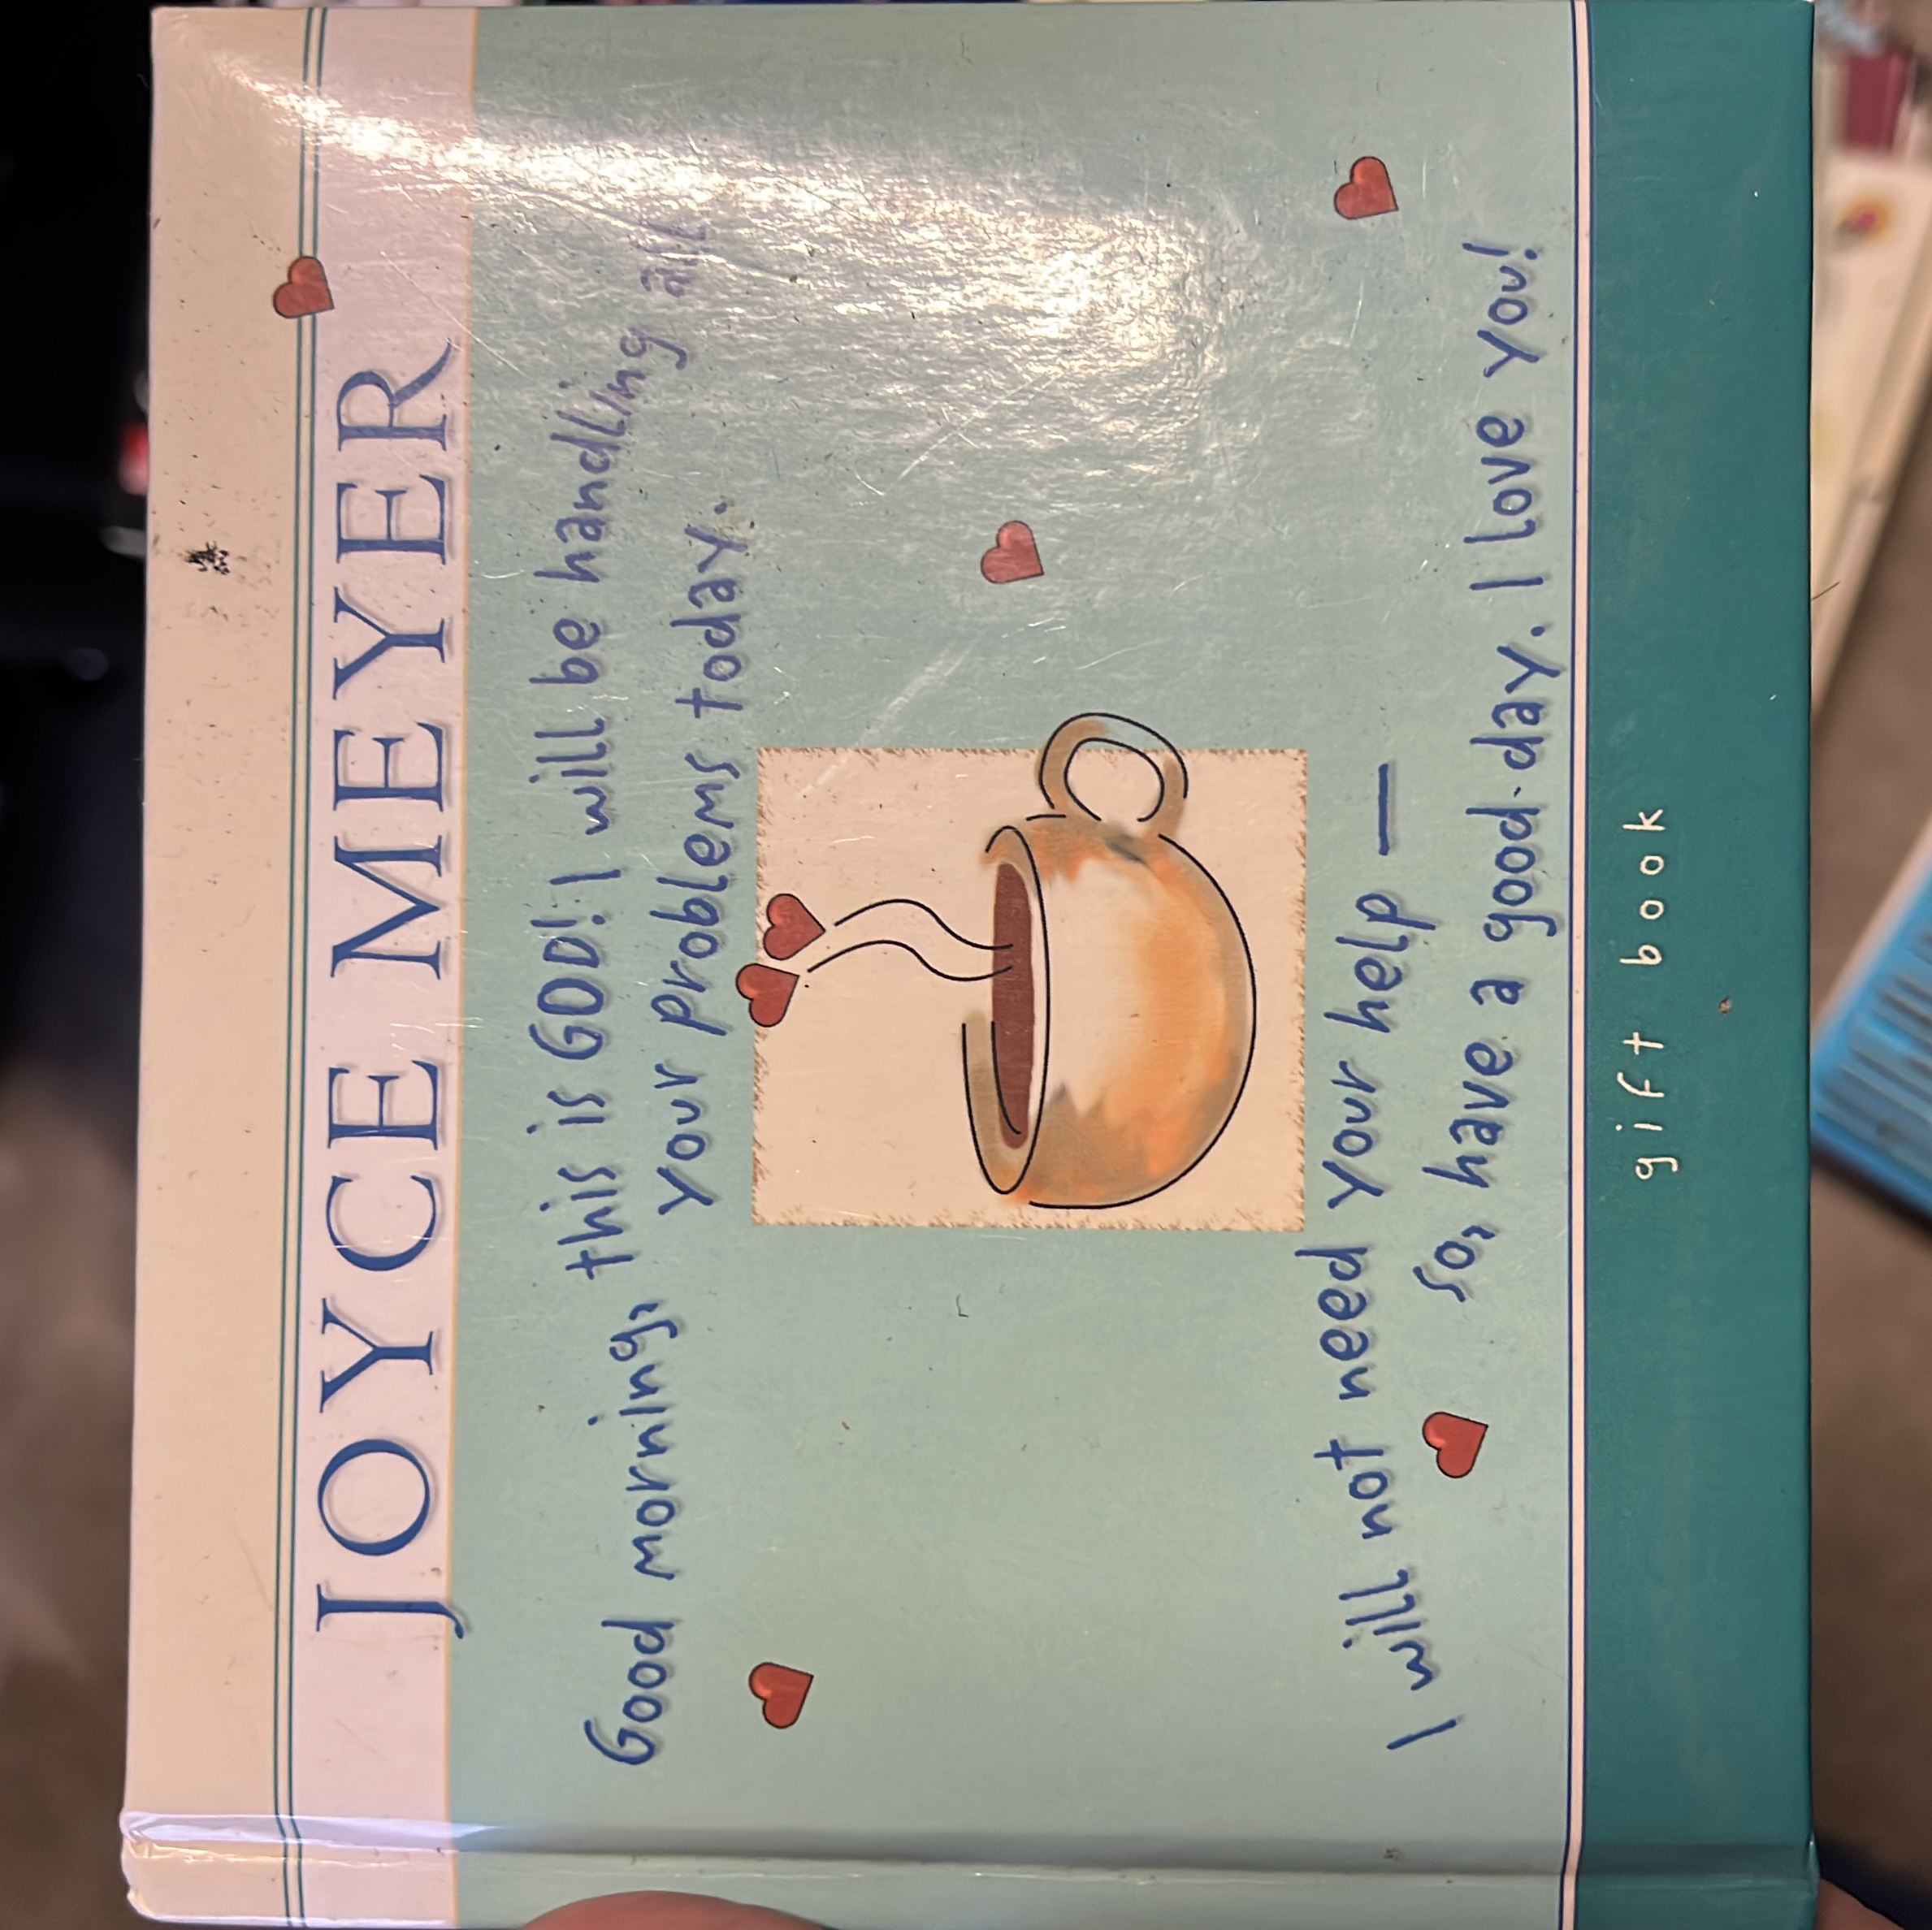 JOYCE MEYER
Good morning, this is GOD! I will be handling all
your problems today.
I will not need your help —
so, have a good day. I love you!
gift book